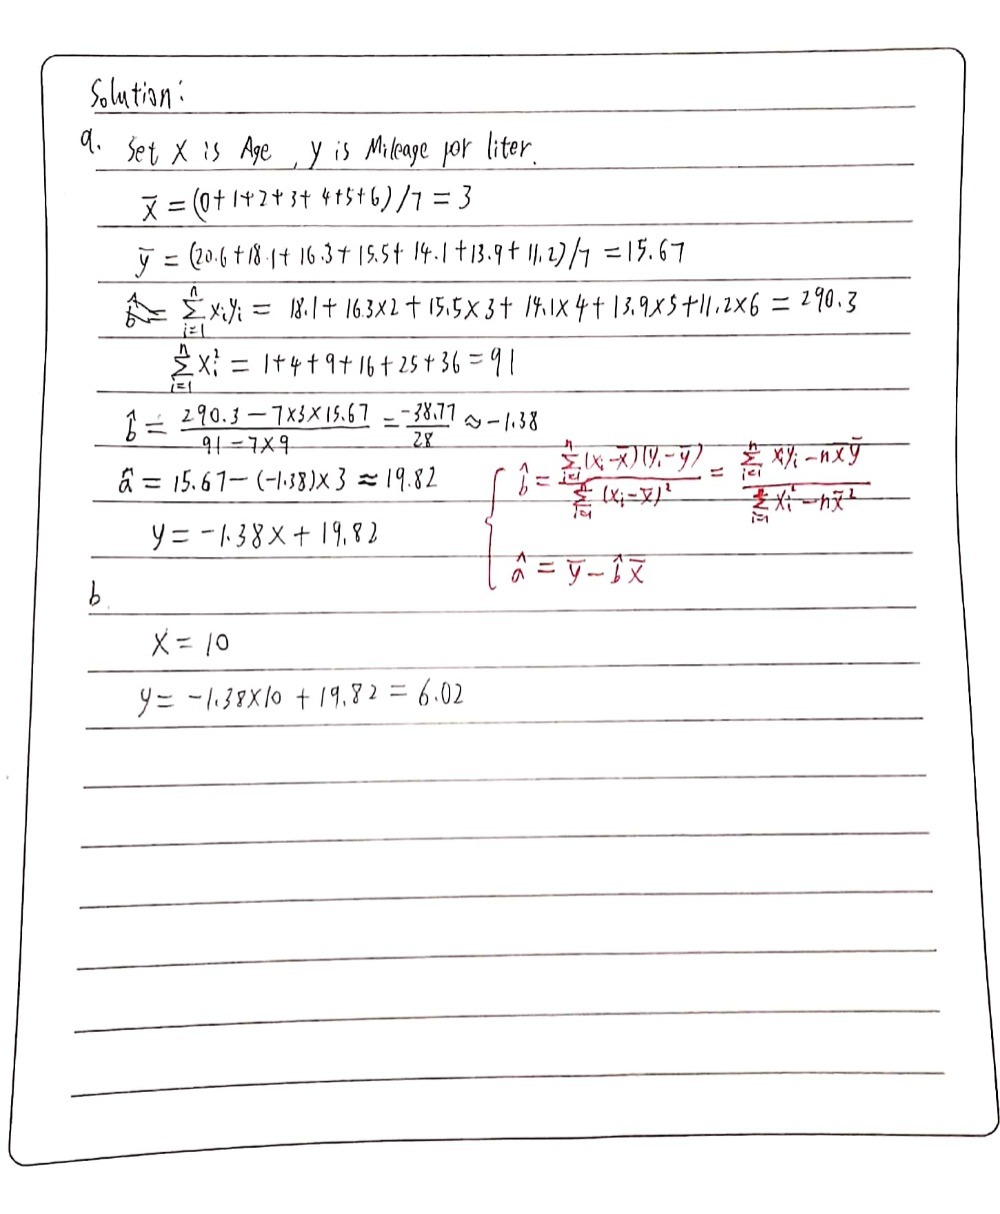 Solution:
a. Set X is Age, y is Mileage per liter.
x̄ = (0+1+2+3+4+5+6)/7 = 3
ȳ = (20.6+18.1+16.3+15.5+14.1+13.9+11.2)/7 = 15.67
∑ᵢ₌₁ⁿ xᵢyᵢ = 18.1+16.3×2+15.5×3+14.1×4+13.9×5+11.2×6 = 290.3
∑ᵢ₌₁ⁿ xᵢ² = 1+4+9+16+25+36 = 91
b̂ = (290.3-7×3×15.67)/(91-7×9) = -38.77/28 ≈ -1.38
â = 15.67-(-1.38)×3 ≈ 19.82
y = -1.38x + 19.82
b̂ = ∑ᵢ₌₁ⁿ(xᵢ-x̄)(yᵢ-ȳ) / ∑ᵢ₌₁ⁿ(xᵢ-x̄)² = (∑ᵢ₌₁ⁿ xᵢyᵢ - nx̄ȳ) / (∑ᵢ₌₁ⁿ xᵢ² - nx̄²)
â = ȳ - b̂x̄
b.
X = 10
y = -1.38×10 + 19.82 = 6.02